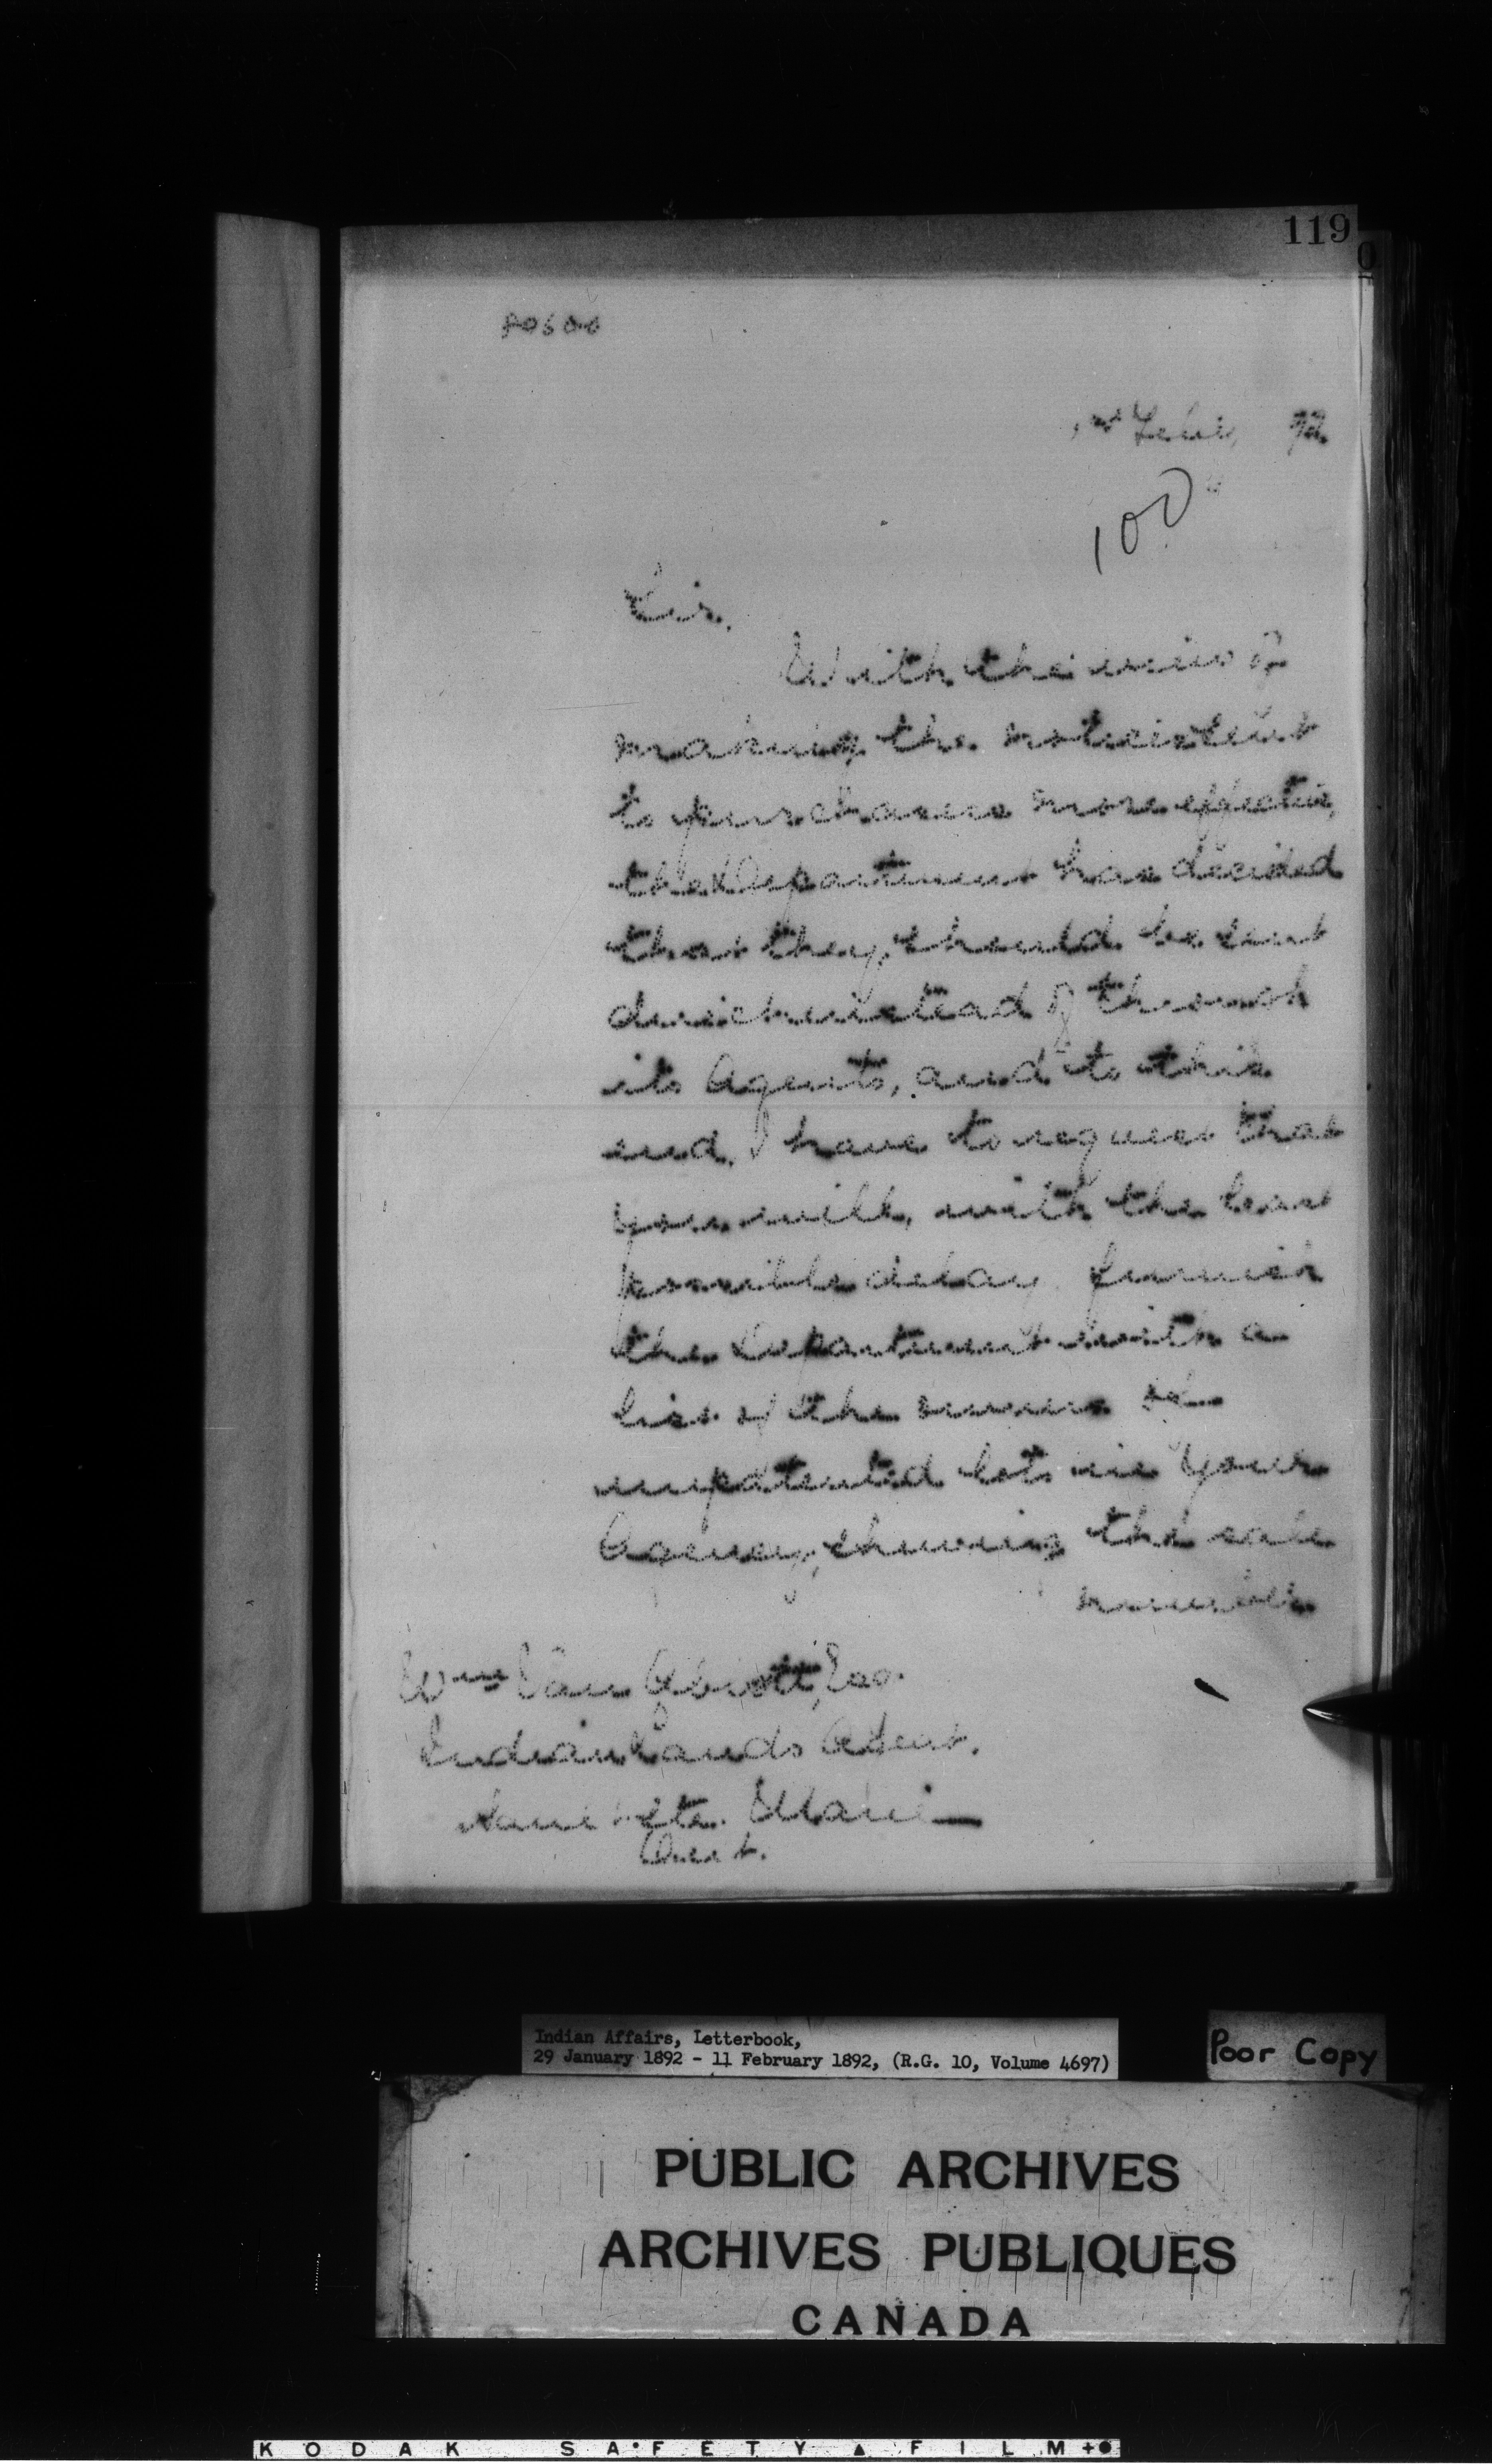 119
0
1st Feby, 92.
100
Sir,
With the view of
making the notices sent
to purchasers more effective,
the Department has decided
that they should be sent
direct instead of through
its Agents, and to this
end, I have to request that
you will, with the least
possible delay, furnish
the Department with a
list of the owners of
unpatented lots in your
Agency, showing the sale
number
Wm Van Abbott, Esq.
Indian Lands Agent,
Sault Ste. Marie
Ont.
Indian Affairs, Letterbook,
29 January 1892 - 11 February 1892, (R.G. 10, Volume 4697)
Poor Copy
PUBLIC ARCHIVES
ARCHIVES PUBLIQUES
CANADA
KODAK SAFETY FILM